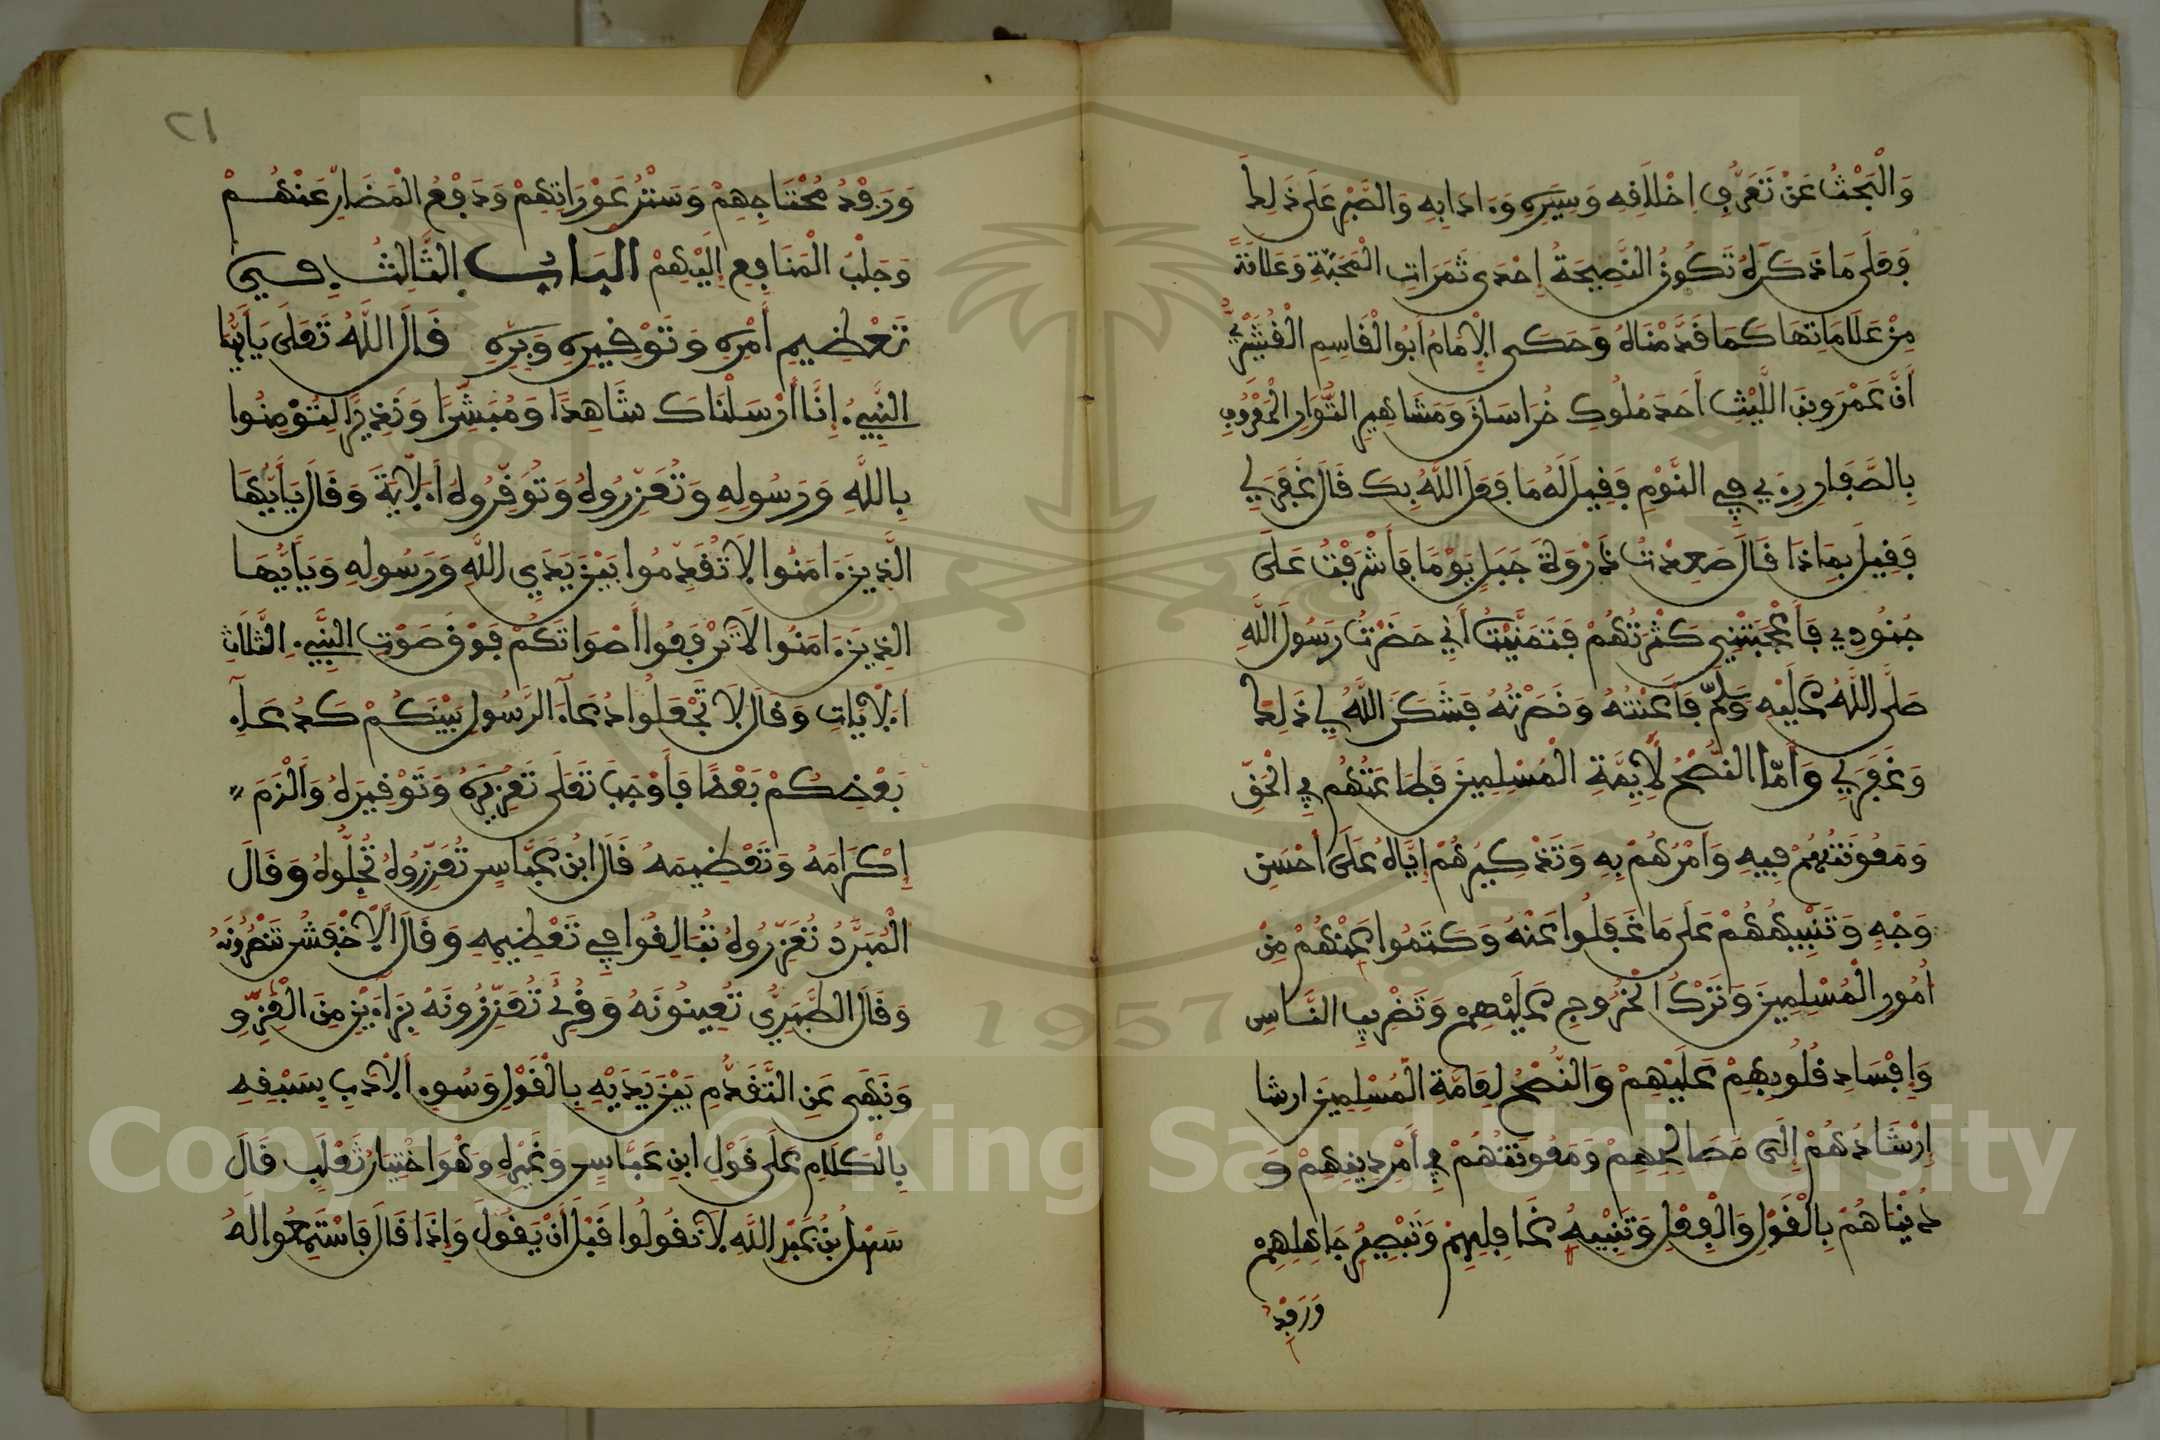 وَالْبَحْثُ عَنْ تَعَرُّفِ اِخْلَافِهِ وَسِيَرِهِ وَءَادَابِهِ وَالصَّبْرِ عَلَى ذَلِكَ
فَعَلَى مَا ذَكَرَهُ تَكُونُ النَّصِيحَةُ إِحْدَى ثَمَرَاتِ الْمَحَبَّةِ وَعَلَامَةً
مِنْ عَلَامَاتِهَا كَمَا قَدَّمْنَاهُ وَحَكَى الْإِمَامُ أَبُو الْقَاسِمِ الْقُشَيْرِيُّ
أَنَّ عَمْرَو بْنَ اللَّيْثِ أَحَدَ مُلُوكِ خُرَاسَانَ وَمَشَاهِيرِ الثُّوَّارِ الْمَعْرُوفِ
بِالصَّفَّارِ رِءِيَ فِي النَّوْمِ فَقِيلَ لَهُ مَا فَعَلَ اللَّهُ بِكَ قَالَ غَفَرَ لِي
فَقِيلَ بِمَاذَا قَالَ صَعِدْتُ ذَرْوَةَ جَبَلٍ يَوْمًا فَأَشْرَفْتُ عَلَى
جُنُودِي فَأَعْجَبَتْنِي كَثْرَتُهُمْ فَتَمَنَّيْتُ أَنِّي حَضَرْتُ رَسُولَ اللَّهِ
صَلَّى اللَّهُ عَلَيْهِ وَسَلَّمَ فَأَعَنْتُهُ وَنَصَرْتُهُ فَشَكَرَ اللَّهُ لِي ذَلِكَ
وَغَفَرَ لِي وَأَمَّا النُّصْحُ لِأَيِمَّةِ الْمُسْلِمِينَ فَطَاعَتُهُمْ فِي الْحَقِّ
وَمَعُونَتُهُمْ فِيهِ وَأَمْرُهُمْ بِهِ وَتَذْكِيرُهُمْ إِيَّاهُ عَلَى أَحْسَنِ
وَجْهٍ وَتَنْبِيهُهُمْ عَلَى مَا غَفَلُوا عَنْهُ وَكَتَمُوا عَنْهُمْ مِنْ
أُمُورِ الْمُسْلِمِينَ وَتَرْكُ الْخُرُوجِ عَلَيْهِمْ وَتَضْرِيبِ النَّاسِ
وَإِفْسَادِ قُلُوبِهِمْ عَلَيْهِمْ وَالنُّصْحُ لِعَامَّةِ الْمُسْلِمِينَ ارشا
إِرْشَادُهُمْ إِلَى مَصَالِحِهِمْ وَمَعُونَتُهُمْ فِي أَمْرِ دِينِهِمْ وَ
دُنْيَاهُمْ بِالْقَوْلِ وَالْفِعْلِ وَتَنْبِيهُ غَافِلِهِمْ وَتَبْصِيرُ جَاهِلِهِمْ
وَرَفْدُ
٢١
وَرَفْدُ مُحْتَاجِهِمْ وَسَتْرُ عَوْرَاتِهِمْ وَدَفْعُ الْمَضَارِّ عَنْهُمْ
وَجَلْبُ الْمَنَافِعِ إِلَيْهِمْ الْبَابُ الثَّالِثُ فِي
تَعْظِيمِ أَمْرِهِ وَتَوْقِيرِهِ وَبِرِّهِ قَالَ اللَّهُ تَعَلَى يَأَيُّهَا
النَّبِيءُ إِنَّا أَرْسَلْنَاكَ شَاهِدًا وَمُبَشِّرًا وَنَذِيرًا لِتُؤْمِنُوا
بِاللَّهِ وَرَسُولِهِ وَتُعَزِّرُوهُ وَتُوَقِّرُوهُ أَلْآيَةَ وَقَالَ يَأَيُّهَا
الَّذِينَ ءَامَنُوا لَا تُقَدِّمُوا بَيْنَ يَدَيِ اللَّهِ وَرَسُولِهِ وَيَأَيُّهَا
الَّذِينَ ءَامَنُوا لَا تَرْفَعُوا أَصْوَاتَكُمْ فَوْقَ صَوْتِ النَّبِيءِ الثَّلَاثَ
أَلْآيَاتِ وَقَالَ لَا تَجْعَلُوا دُعَآءَ الرَّسُولِ بَيْنَكُمْ كَدُعَآءِ
بَعْضِكُمْ بَعْضًا فَأَوْجَبَ تَعَلَى تَعْزِيرَهُ وَتَوْقِيرَهُ وَأَلْزَمَ
إِكْرَامَهُ وَتَعْظِيمَهُ قَالَ ابْنُ عَبَّاسٍ تُعَزِّرُوهُ تُجِلُّوهُ وَقَالَ
الْمُبَرَّدُ تُعَزِّرُوهُ تُبَالِغُوا فِي تَعْظِيمِهِ وَقَالَ الْأَخْفَشُ تَنْصُرُونَهُ
وَقَالَ الطَّبَرِيُّ تُعِينُونَهُ وَقُرِئَ تُعَزِّزُونَهُ بِزَاءَيْنِ مِنَ الْعِزِّ وَ
وَنَهَى عَنِ التَّقَدُّمِ بَيْنَ يَدَيْهِ بِالْقَوْلِ وَسُوءِ الْأَدَبِ بِسَبْقِهِ
بِالْكَلَامِ عَلَى قَوْلِ ابْنِ عَبَّاسٍ وَغَيْرِهِ وَهْوَ اخْتِيَارُ ثَعْلَبٍ قَالَ
سَهْلُ بْنُ عَبْدِ اللَّهِ لَا تَقُولُوا قَبْلَ أَنْ يَقُولَ وَإِذَا قَالَ فَاسْتَمِعُوا لَهُ
1957
Copyright © King Saud University